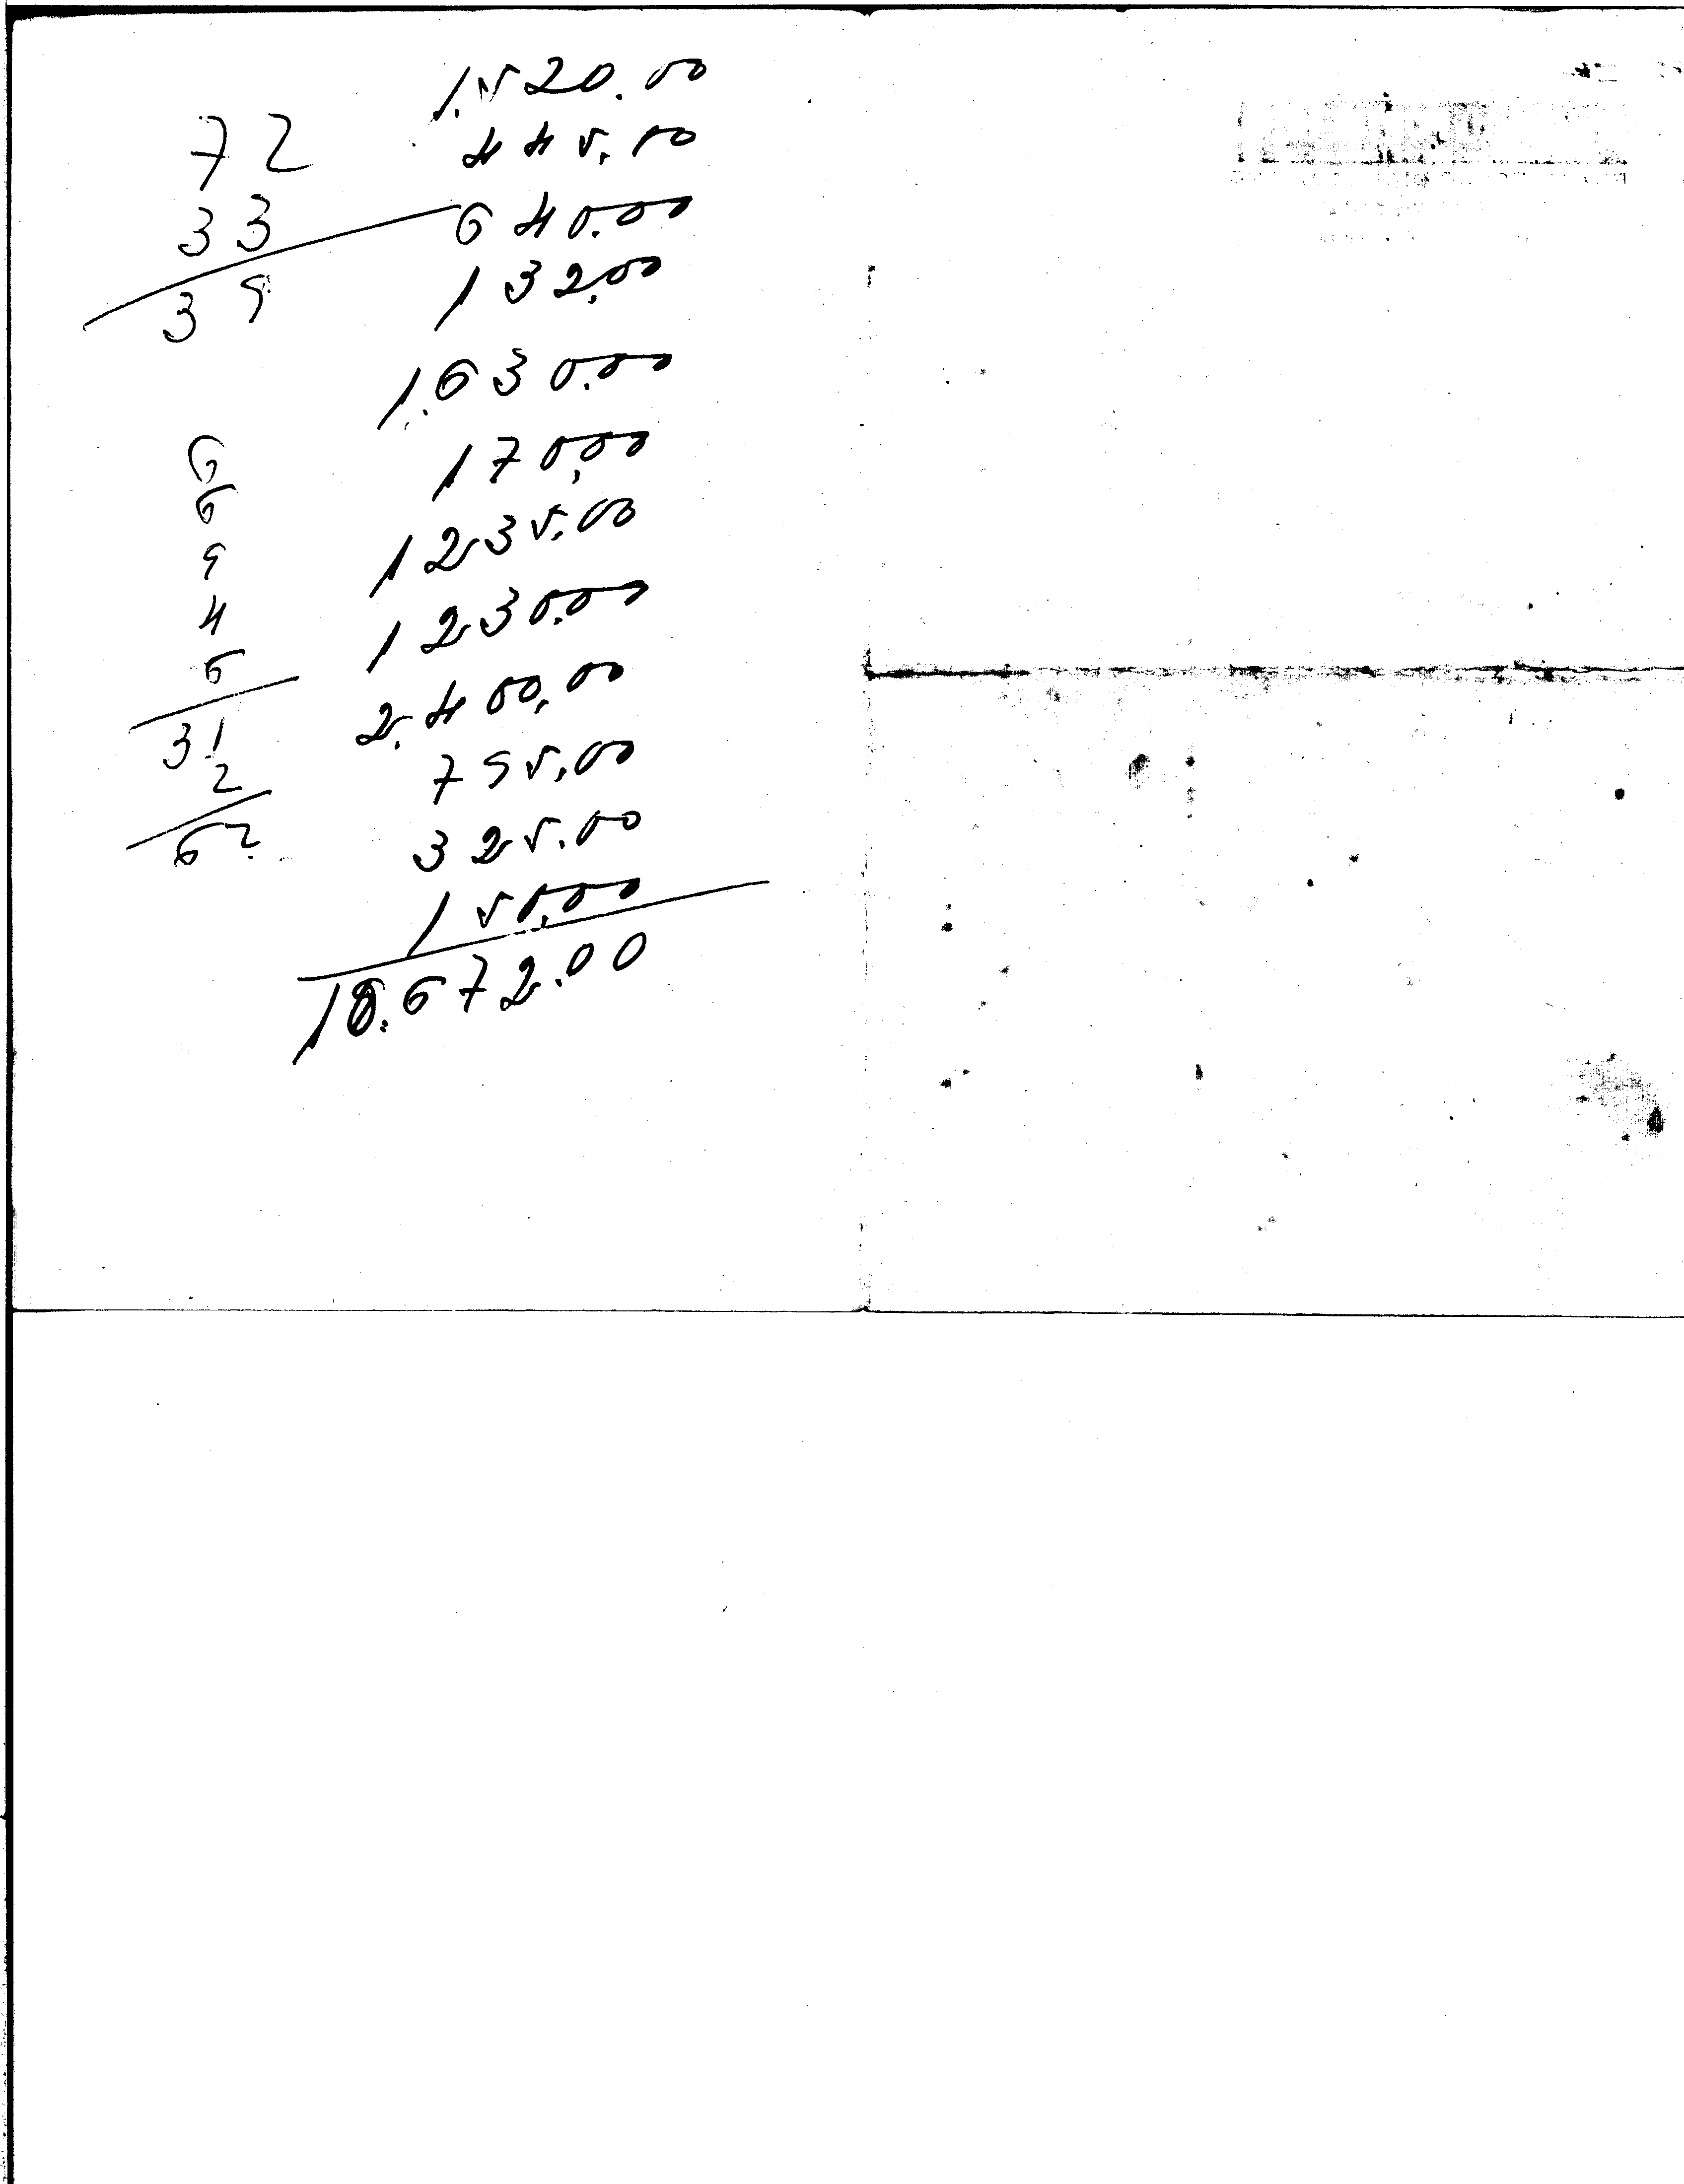 72
33
39
6
6
9
4
6
31
2
62
1.520.00
445.00
640.00
132,00
1.630.00
170,00
1235,00
1230.00
2.400,00
795,00
325.00
150,00
10.672.00